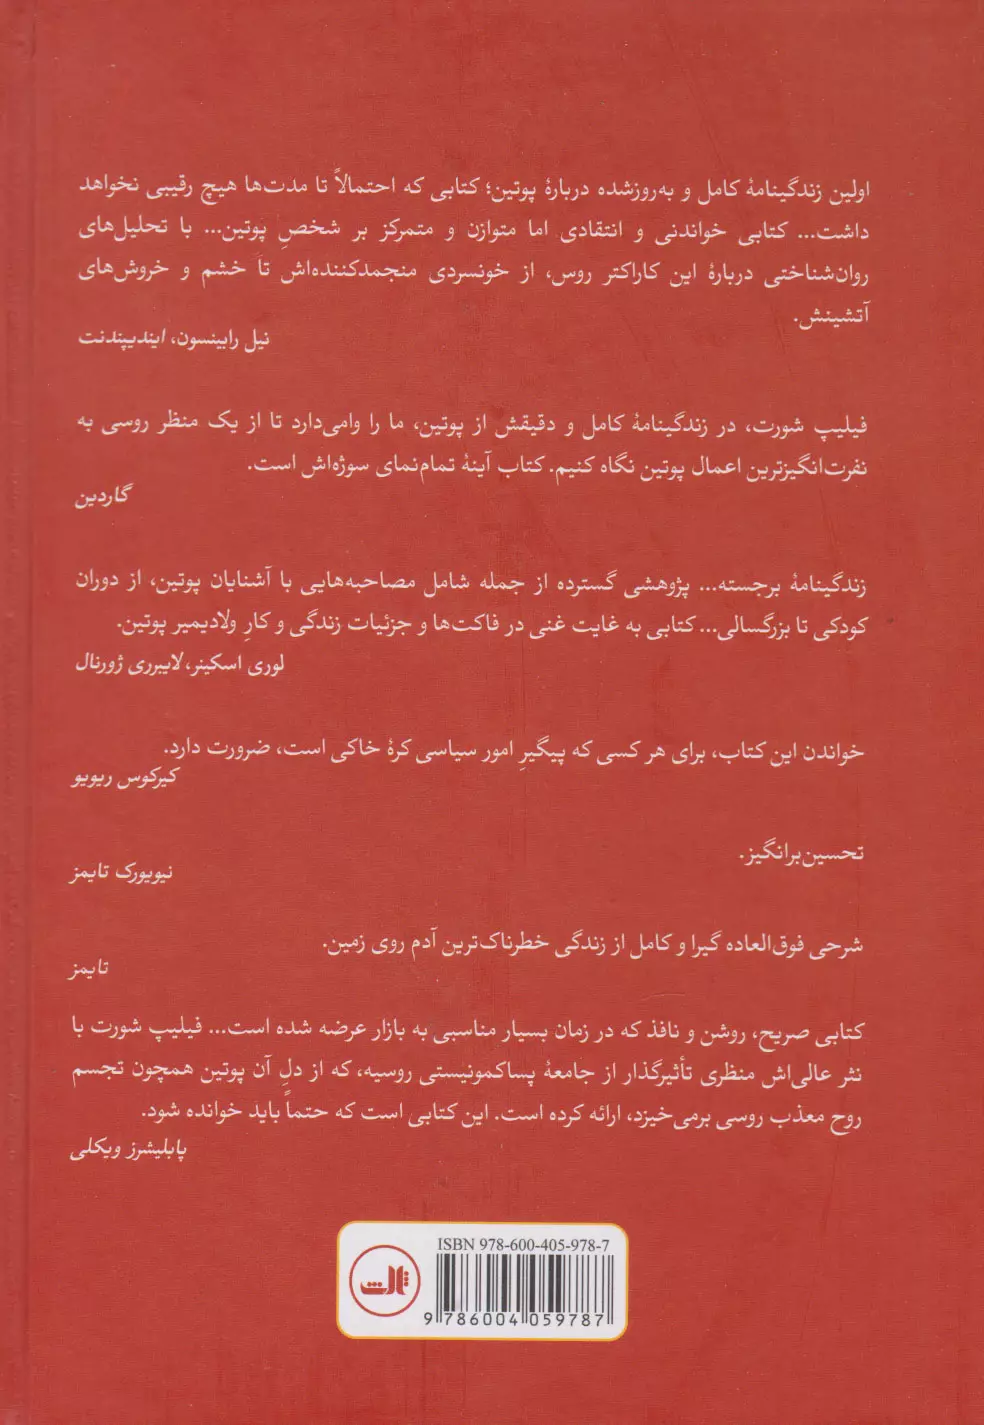 اولین زندگینامهٔ کامل و به‌روزشده دربارهٔ پوتین؛ کتابی که احتمالاً تا مدت‌ها هیچ رقیبی نخواهد
داشت... کتابی خواندنی و انتقادی اما متوازن و متمرکز بر شخصِ پوتین... با تحلیل‌های
روان‌شناختی دربارهٔ این کاراکتر روس، از خونسردی منجمدکننده‌اش تا خشم و خروش‌های
آتشینش.
نیل رابینسون، ایندیپندنت
فیلیپ شورت، در زندگینامهٔ کامل و دقیقش از پوتین، ما را وامی‌دارد تا از یک منظر روسی به
نفرت‌انگیزترین اعمال پوتین نگاه کنیم. کتاب آینهٔ تمام‌نمای سوژه‌اش است.
گاردین
زندگینامهٔ برجسته... پژوهشی گسترده از جمله شامل مصاحبه‌هایی با آشنایان پوتین، از دوران
کودکی تا بزرگسالی... کتابی به غایت غنی در فاکت‌ها و جزئیات زندگی و کارِ ولادیمیر پوتین.
لوری اسکینر، لایبرری ژورنال
خواندن این کتاب، برای هر کسی که پیگیرِ امور سیاسی کرهٔ خاکی است، ضرورت دارد.
کیرکوس ریویو
تحسین‌برانگیز.
نیویورک تایمز
شرحی فوق‌العاده گیرا و کامل از زندگی خطرناک‌ترین آدم روی زمین.
تایمز
کتابی صریح، روشن و نافذ که در زمان بسیار مناسبی به بازار عرضه شده است... فیلیپ شورت با
نثر عالی‌اش منظری تأثیرگذار از جامعهٔ پساکمونیستی روسیه، که از دلِ آن پوتین همچون تجسم
روح معذب روسی برمی‌خیزد، ارائه کرده است. این کتابی است که حتماً باید خوانده شود.
پابلیشرز ویکلی
ISBN 978-600-405-978-7
ثالث
9 786004 059787